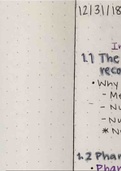 12/31/18
In
1.1 The
reco
• Why
- Me
- Nu
- Nu
* No
1.2 Phar
• Phar